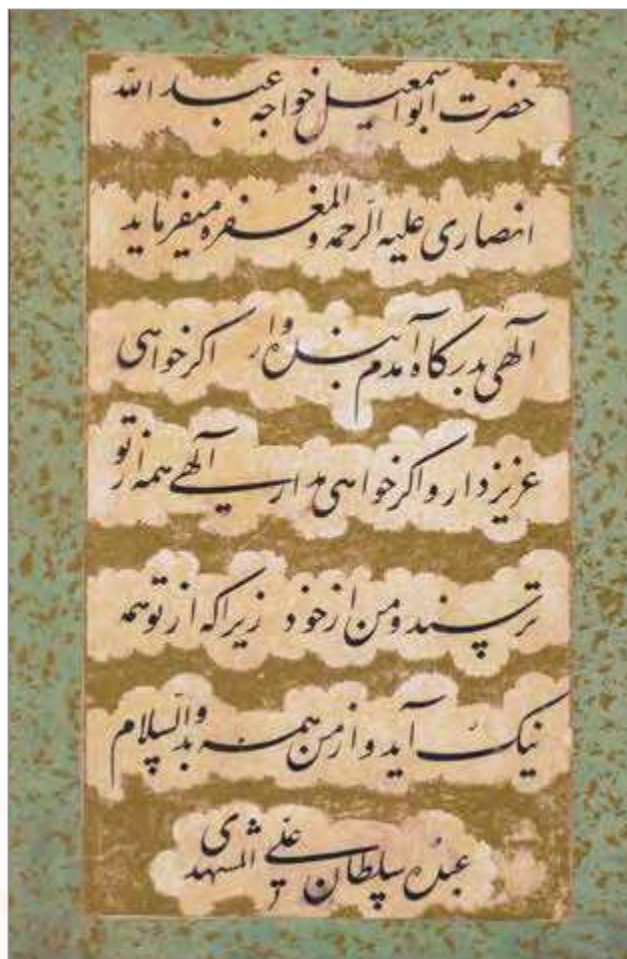 حضرت ابو اسمعیل خواجه عبد الله
انصاری علیه الرّحمه والمغفره میفرماید
آلهی بدرکاه آمدم بنده وار اکر خواهی
عزیز دار و اکر خواهی مدار آلهی همه از تو
ترسند و من از خود زیرا که از تو همه
نیک آید و از من همه بد والسّلام
عبده سلطان علی المشهدی